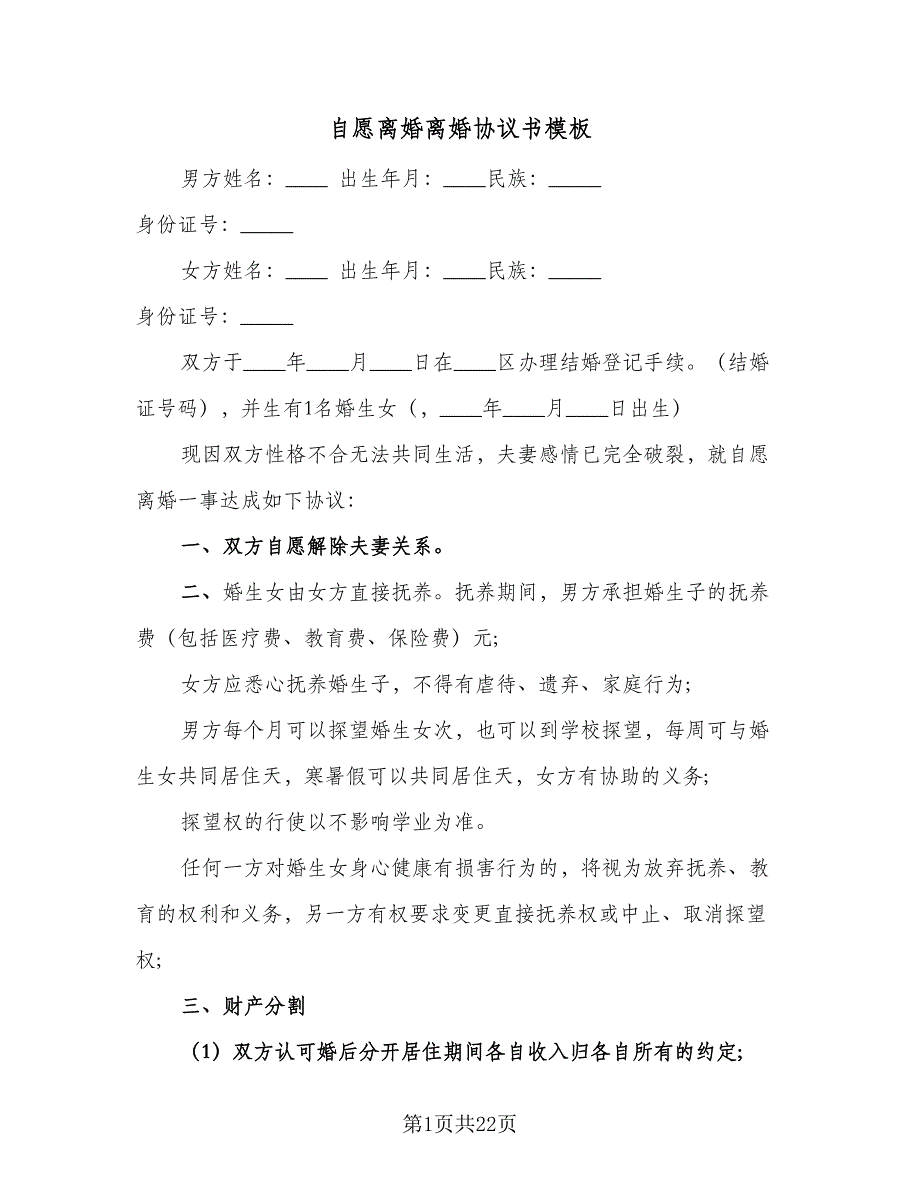 自愿离婚离婚协议书模板
男方姓名：____ 出生年月：____民族：_____
身份证号：_____
女方姓名：____ 出生年月：____民族：_____
身份证号：_____
双方于____年____月____日在____区办理结婚登记手续。（结婚
证号码），并生有1名婚生女（，____年____月____日出生）
现因双方性格不合无法共同生活，夫妻感情已完全破裂，就自愿
离婚一事达成如下协议：
一、双方自愿解除夫妻关系。
二、婚生女由女方直接抚养。抚养期间，男方承担婚生子的抚养
费（包括医疗费、教育费、保险费）元;
女方应悉心抚养婚生子，不得有虐待、遗弃、家庭行为;
男方每个月可以探望婚生女次，也可以到学校探望，每周可与婚
生女共同居住天，寒暑假可以共同居住天，女方有协助的义务;
探望权的行使以不影响学业为准。
任何一方对婚生女身心健康有损害行为的，将视为放弃抚养、教
育的权利和义务，另一方有权要求变更直接抚养权或中止、取消探望
权;
三、财产分割
（1）双方认可婚后分开居住期间各自收入归各自所有的约定;
第1页共22页